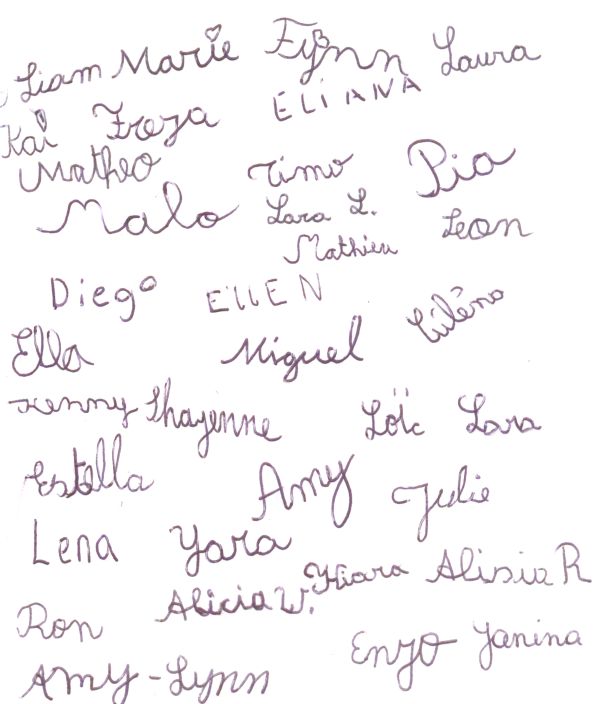 Liam Marie Fynn Laura
Kai Freya ELIANA
Matheo Timo Pia
Malo Lara L. Leon
Mathieu
Diego EllEN
Ella Miguel Liléno
Kenny Shayenne Loïc Lara
Estella Amy Julie
Lena Yara
Kiara Alisia R
Ron Alicia W.
Enzo Janina
Amy-Lynn